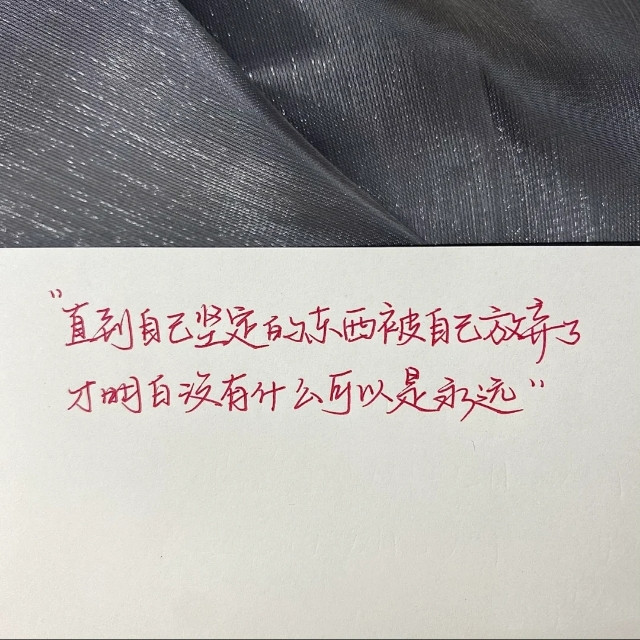 "直到自己坚定的东西被自己放弃了
才明白没有什么可以是永远"